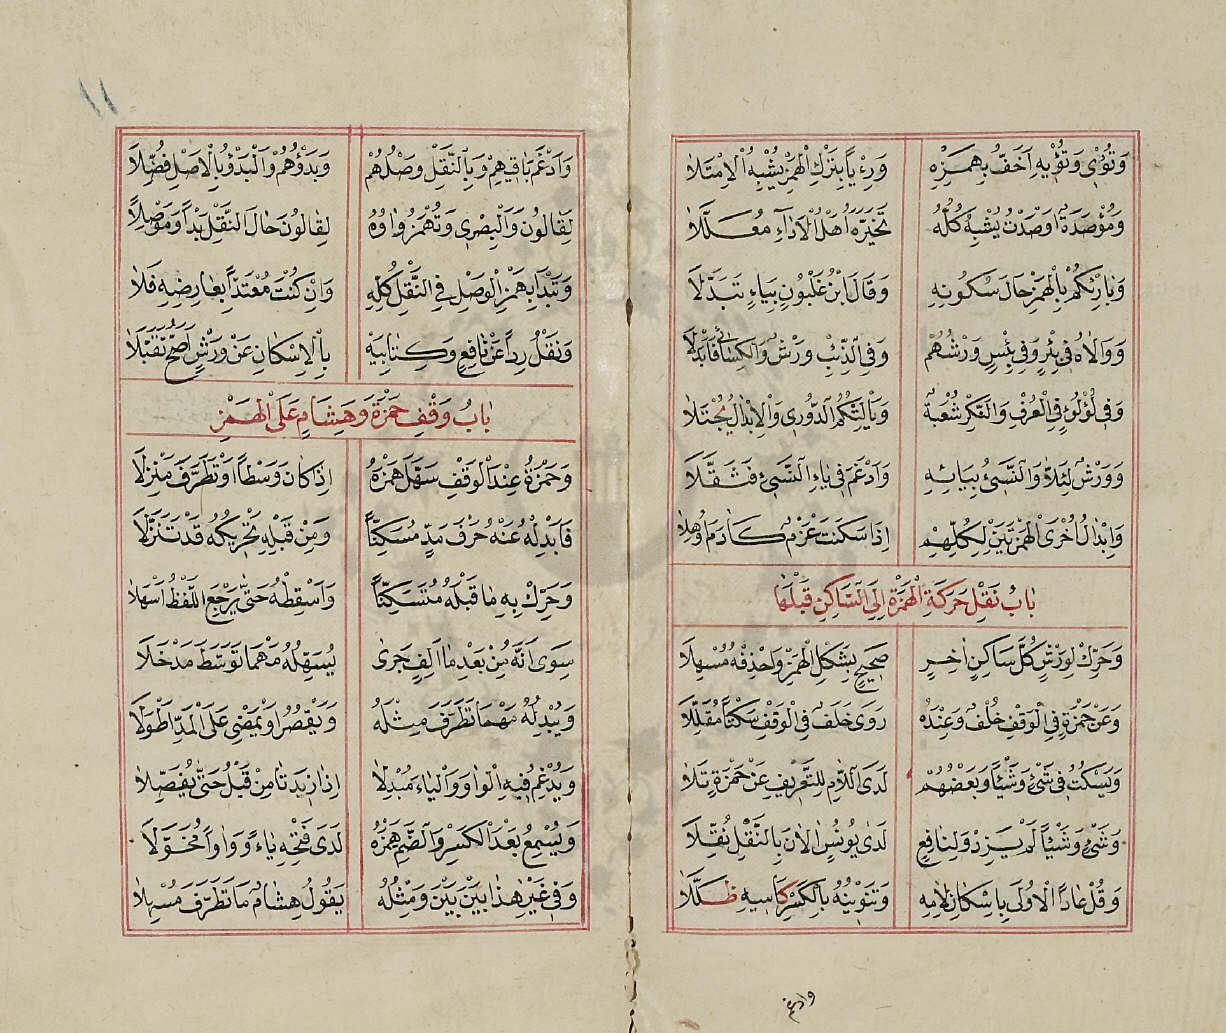 وَتُؤْوِي وَتُؤْوِيهِ أَخَفُّ بِهَمْزِهِ وَرِءْيًا بِتَرْكِ الْهَمْزِ يُشْبِهُ الْاِمْتِلَا
وَمُؤْصَدَةٌ أَوْصَدْتُ يُشْبِهُ كُلُّهُ تَخَيَّرَهُ أَهْلُ الْأَدَاءِ مُعَلَّلَا
وَبَارِئْكُمُ بِالْهَمْزِ حَالَ سُكُونِهِ وَقَالَ ابْنُ غَلْبُونٍ بِيَاءٍ تَبَدَّلَا
وَوَالَاهُ فِي بِئْرٍ وَفِي بِئْسِ وَرْشُهُمْ وَفِي الذِّئْبُ وَرْشٌ وَالْكِسَائِي فَأَبْدَلَا
وَفِي لُؤْلُؤٍ فِي الْعُرْفِ وَالنُّكْرِ شُعْبَةٌ وَيَأْلِتْكُمُ الدُّورِي وَالْإِبْدَالُ يُجْتَلَا
وَوَرْشٌ لِئَلَّا وَالنَّسِيءُ بِيَائِهِ وَأَدْغَمَ فِي يَاءِ النَّسِيءِ فَثَقَّلَا
وَإِبْدَالُ أُخْرَى الْهَمْزَتَيْنِ لِكُلِّهِمْ إِذَا سَكَنَتْ عَزْمٌ كَآدَمَ أُوهِلَا
بَابُ نَقْلِ حَرَكَةِ الْهَمْزَةِ إِلَى السَّاكِنِ قَبْلَهَا
وَحَرِّكْ لِوَرْشٍ كُلَّ سَاكِنٍ آخِرٍ صَحِيحٍ بِشَكْلِ الْهَمْزِ وَاحْذِفْهُ مُسْهِلَا
وَعَنْ حَمْزَةٍ فِي الْوَقْفِ خُلْفٌ وَعِنْدَهُ رَوَى خَلَفٌ فِي الْوَقْفِ سَكْتًا مُقَلَّلَا
وَيَسْكُتُ فِي شَيْءٍ وَشَيْئًا وَبَعْضُهُمْ لَدَى اللَّامِ لِلتَّعْرِيفِ عَنْ حَمْزَةٍ تَلَا
وَشَيْءٍ وَشَيْئًا لَمْ يَزِدْ وَلِنَافِعٍ لَدَى يُونُسٍ الْآنَ بِالنَّقْلِ نُقِّلَا
وَقُلْ عَادًا الْأُولَى بِإِسْكَانِ لَامِهِ وَتَنْوِينُهُ بِالْكَسْرِ كَاسِيهِ ظَلَّلَا
وادغم
١١
وَأَدْغَمَ بَاقِيهِمْ وَبِالنَّقْلِ وَصْلُهُمْ وَبَدْؤُهُمْ وَالْبَدْؤُ بِالْأَصْلِ فُضِّلَا
لِقَالُونَ وَالْبِصْرِي وَتُهْمَزُ وَاوُهُ لِقَالُونَ حَالَ النَّقْلِ بَدْأً وَمَوْصِلَا
وَتَبْدَأ بِهَمْزِ الْوَصْلِ فِي النَّقْلِ كُلِّهِ وَإِنْ كُنْتَ مُعْتَدًّا بِعَارِضِهِ فَلَا
وَنَقْلُ رِدًا عَنْ نَافِعٍ وَكِتَابِيَهْ بِالْإِسْكَانِ عَنْ وَرْشٍ أَصَحُّ تَقَبُّلَا
بَابُ وَقْفِ حَمْزَةَ وَهِشَامٍ عَلَى الْهَمْزِ
وَحَمْزَةُ عِنْدَ الْوَقْفِ سَهَّلَ هَمْزَهُ إِذَا كَانَ وَسْطًا أَوْ تَطَرَّفَ مَنْزِلَا
فَأَبْدِلْهُ عَنْهُ حَرْفَ مَدٍّ مُسَكِّنًا وَمِنْ قَبْلِهِ تَحْرِيكُهُ قَدْ تَنَزَّلَا
وَحَرِّكْ بِهِ مَا قَبْلَهُ مُتَسَكِّنًا وَأَسْقِطْهُ حَتَّى يَرْجِعَ اللَّفْظُ أَسْهَلَا
سِوَى أَنَّهُ مِنْ بَعْدِ مَا أَلِفٍ جَرَى يُسَهِّلُهُ مَهْمَا تَوَسَّطَ مَدْخَلَا
وَيُبْدِلُهُ مَهْمَا تَطَرَّفَ مِثْلَهُ وَيَقْصُرُ أَوْ يَمْضِي عَلَى الْمَدِّ أَطْوَلَا
وَيُدْغِمُ فِيهِ الْوَاوَ وَالْيَاءَ مُبْدِلًا إِذَا زِيدَتَا مِنْ قَبْلُ حَتَّى يُفَصِّلَا
وَيُسْمِعُ بَعْدَ الْكَسْرِ وَالضَّمِّ هَمْزَهُ لَدَى فَتْحِهِ يَاءً وَوَاوًا مُحَوَّلَا
وَفِي غَيْرِ هَذَا بَيْنَ بَيْنَ وَمِثْلُهُ يَقُولُ هِشَامٌ مَا تَطَرَّفَ مُسْهِلَا